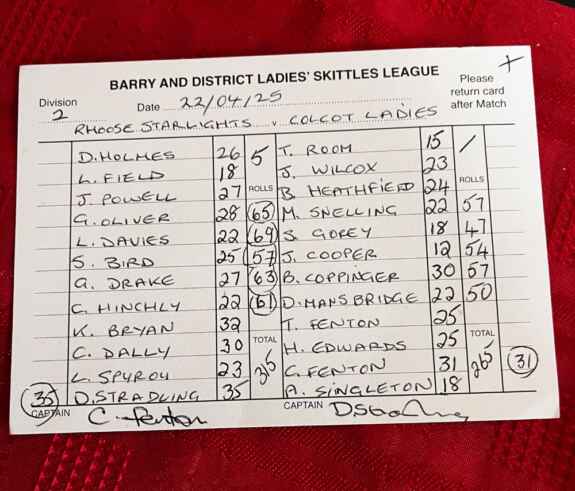 BARRY AND DISTRICT LADIES' SKITTLES LEAGUE
Please return card after Match
+
Division 2
Date 22/04/25
RHOOSE STARLIGHTS v COLCOT LADIES
D. HOLMES 26 5 T. ROOM 15 1
L. FIELD 18 J. WILCOX 23
J. POWELL 27 ROLLS B. HEATHFIELD 24 ROLLS
G. OLIVER 28 65 M. SNELLING 22 57
L. DAVIES 22 69 S. GOREY 18 47
S. BIRD 25 57 J. COOPER 12 54
G. DRAKE 27 63 B. COPPINGER 30 57
C. HINCHLY 22 61 D. MANSBRIDGE 22 50
K. BRYAN 32 T. FENTON 25
C. DALLY 30 TOTAL H. EDWARDS 25 TOTAL
L. SPYROU 23 315 C. FENTON 31 265 31
35 D. STRADLING 35 A. SINGLETON 18
CAPTAIN C. Fenton CAPTAIN